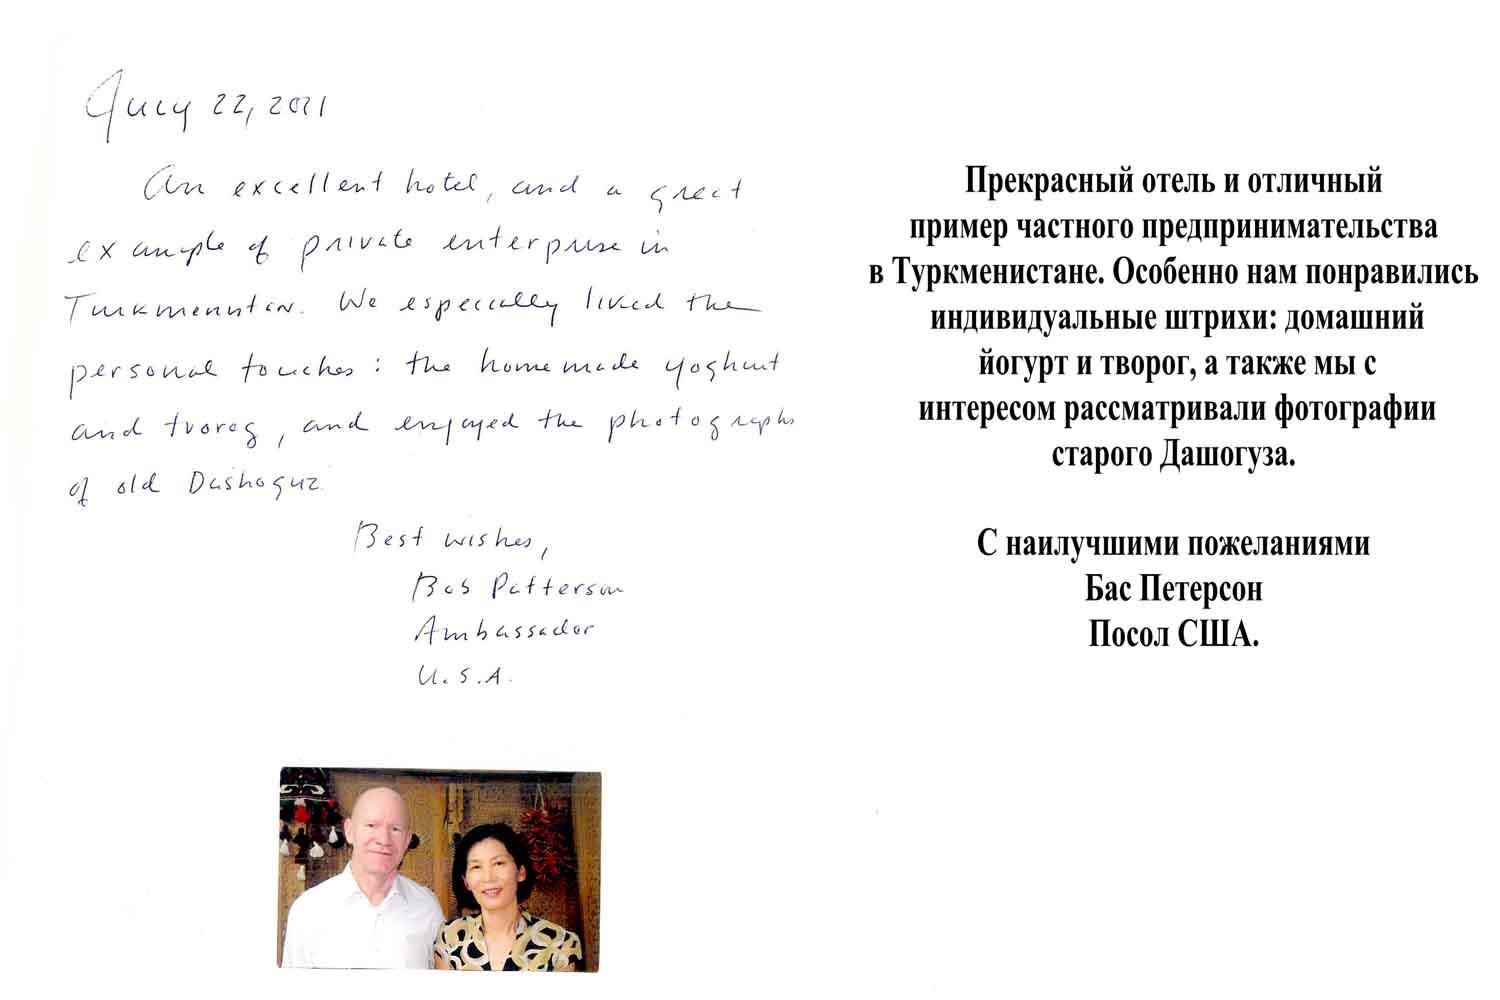 July 22, 2021
An excellent hotel, and a great
example of private enterprise in
Turkmenistan. We especially liked the
personal touches: the homemade yoghurt
and tvorog, and enjoyed the photographs
of old Dashoguz.
Best wishes,
Bob Patterson
Ambassador
U.S.A.
Прекрасный отель и отличный
пример частного предпринимательства
в Туркменистане. Особенно нам понравились
индивидуальные штрихи: домашний
йогурт и творог, а также мы с
интересом рассматривали фотографии
старого Дашогуза.
С наилучшими пожеланиями
Бас Петерсон
Посол США.